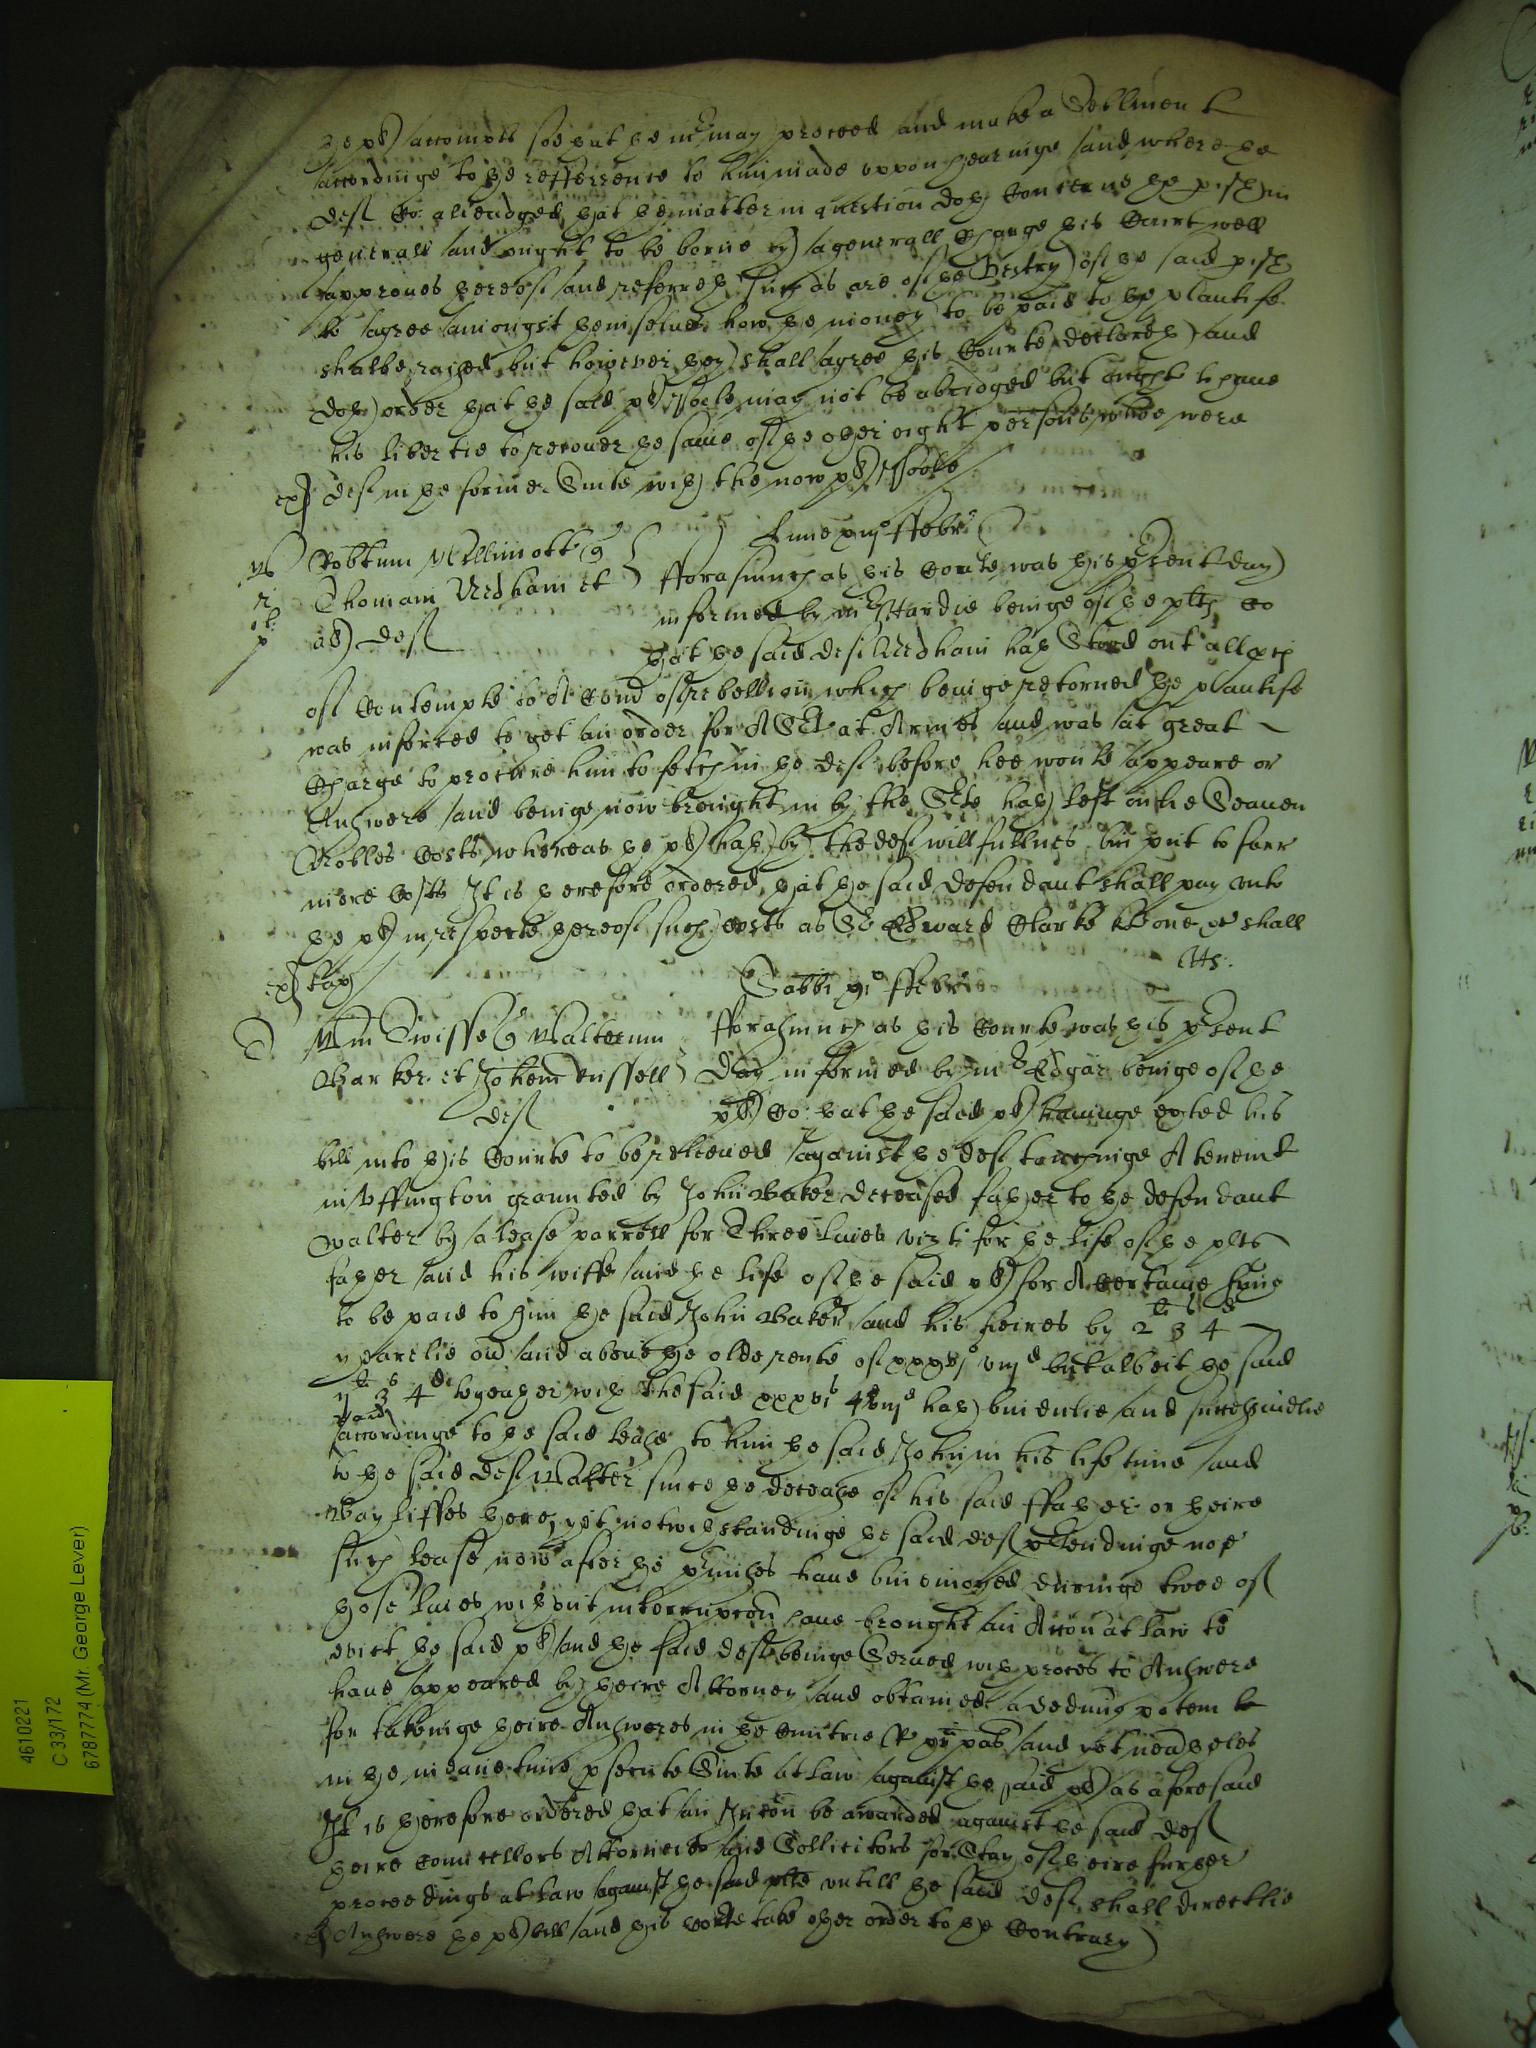 the pl) accompts soe that the mr may proceed and make a Settlment
accordinge to the refference to him made uppon hearinge and where the
deft Co: alleadged that the matter in question doth concerne the pish in
generall and ought to be borne by a generall charge this Court well
approves thereof and referreth such as are of the Vestry of the said pish
to agree amongst themselves how the money to be paid to the plantife
shalbe raised but however they shall agree this Courte declareth and
doth order that the said pl) may not be abridged but ought to have
his libertie to recover the same of the other eight persons whoe were
ex deft in the former Suite with the now pl)
Robtum Willmott
Thomam Nedham et
al) deft
Lune xiijo ffebr
fforasmuch as this Courte was this present day
informed by mr Hardie beinge of the plts Co
that the said deft Nedham hath Stood out all pces
of Contempte to A Comd of rebellion which beinge retorned the plantife
was inforced to get an order for A Sert at Armes and was at great
Charge to procure him to fetch in the deft before hee would appeare or
Answere and beinge now brought in by the Serte hath left onlie Seaven
Nobles Costs whereas the pl) hath by the deft willfullnes bin put to farr
more Costs It is therefore ordered that the said defendant shall pay unto
the pl) in respecte thereof such costs as Sr Edward Clarke kt one &c shall
ex tax
Sabbi xio ffebr
Wm Twisse Walterum
Barker et Johem Russell
deft
fforasmuch as this Courte was this present
Day informed by mr Edgar beinge of the
pl) Co: that the said pl) havinge exted his
bill into this Courte to be releived against the deft touchinge A tenemt
in Uffington graunted by John Baker deceased father to the defendant
Walter by a lease parroll for Three Lives vizt for the life of the plts
father and his wiffe and the life of the said pl) for A certaine Fine
to be paid to him the said John Baker and his heires by 2 3 4
li s d
yearelie ovr and above the olde rente of xxxvjs viijd but albeit the said
ij li 3 s 4 d togeather with the said xxxvjs viijd hath bin dulie and
paid
accordinge to the said lease to him the said John in his life time and
to the said deft Walter since the decease of his said ffather or theire
Bayliffes there yet notwithstandinge the said deft ptendinge noe
such lease now after the pmisses have bin enioyed duringe twoe of
those lives without interrupcon have brought an Accon at law to
evict the said pl) and the said deft beinge Served with proces to Answere
have appeared by theire Attorney and obtained a dedimus potem te
for takeinge theire Answeres in the Cuntrie and yet neatheles
in the meane time psecute Suite at law against the said pl) as aforesaid
It is therefore ordered that an Iniccon be awarded against the said deft
theire Councellors Attorneies and Sollicitors for Stay of theire further
proceedings at law against the said plte untill the said deft shall directlie
Answere the pl) bill and this Courte take other order to the Contrary
4610221
C 33/172
6787774 (Mr. George Lever)